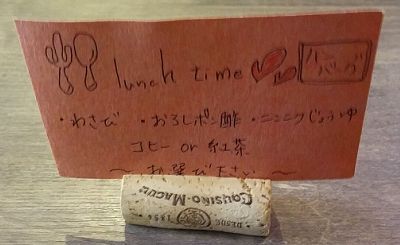 lunch time
ハンバーグ
・わさび ・おろしポン酢 ・ニンニクじょうゆ
コヒー or 紅茶
〜お選び下さい〜
COUSIÑO-MACUL
DESDE 1856